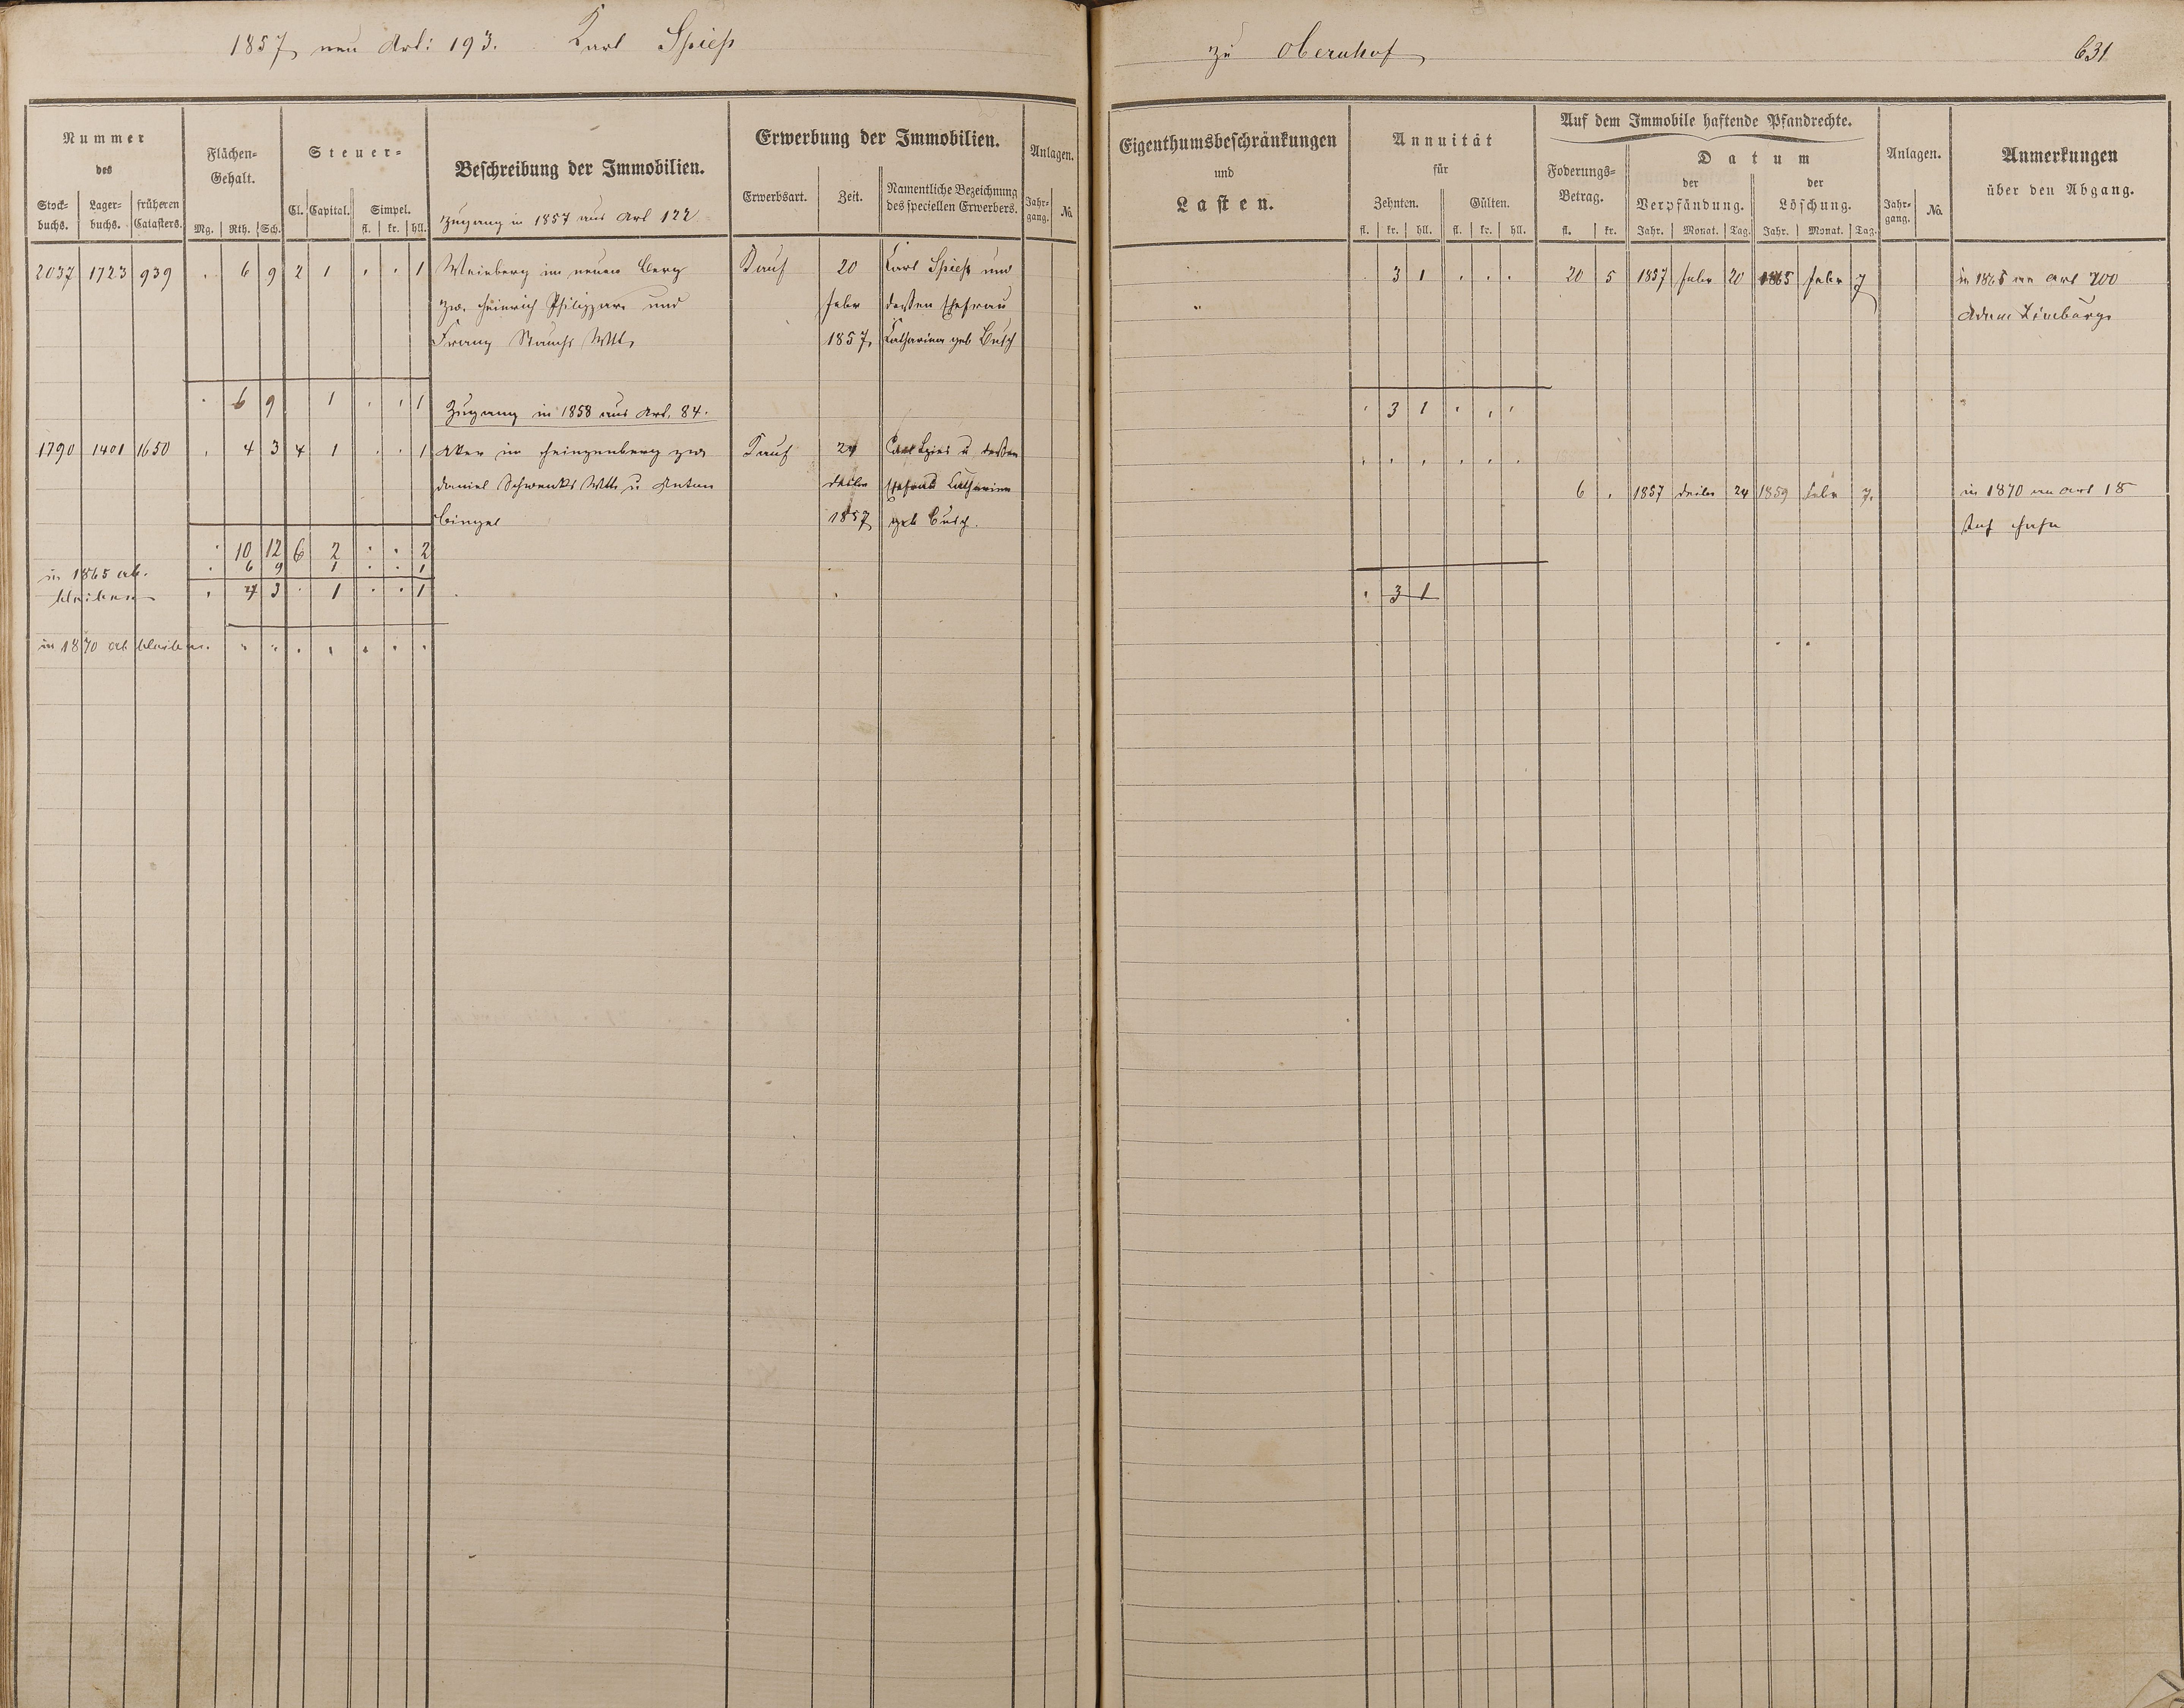 1857 neu Art: 193. Karl Spieß
zu Obernhof 631
Nummer des
Stock-buchs. Lager-buchs. früheren Catasters.
Flächen-Gehalt.
Mg. Rth. Sch.
Steuer-
Cl. Capital. Simpel.
fl. kr. hll.
Beschreibung der Immobilien.
Zugang in 1857 aus Art 122
Erwerbung der Immobilien.
Erwerbsart. Zeit. Namentliche Bezeichnung des speciellen Erwerbers.
Anlagen.
Jahr-gang. No.
Eigenthumsbeschränkungen
und
Lasten.
Annuität
für
Zehnten. Gülten.
fl. kr. hll. fl. kr. hll.
Auf dem Immobile haftende Pfandrechte.
Foderungs-Betrag.
fl. kr.
Datum
der Verpfändung. der Löschung.
Jahr. Monat. Tag. Jahr. Monat. Tag.
Anlagen.
Jahr-gang. No.
Anmerkungen
über den Abgang.
2037 1723 939 . 6 9 2 1 . . 1 Weinberg im neuen Berg Kauf 20 Karl Spieß und
zw. Heinrich Philippar und febr dessen Ehefrau
Franz Rauchs Wtb. 1857. Katharina geb Busch
. 3 1 . . . 20 5 1857 febr 20 1865 febr 7 in 1865 an Art 200
Adam Limburg
. 6 9 1 . . 1
Zugang in 1858 aus Art. 84.
. 3 1 . . .
1790 1401 1650 . 4 3 4 1 . . 1 Acker im Heinzenberg zw Kauf 24 Carl Spies u dessen
Daniel Schwenks Wtb u Anton dezbr Ehefrau Catharina
Bingel 1857 geb Busch.
. . . . . .
6 . 1857 dezbr 24 1859 febr 7. in 1870 an Art 18
. 10 12 6 2 . . 2
in 1865 ab. . 6 9 1 . . 1
bleiben . 4 3 . 1 . . 1
. 3 1
in 1870 ab bleiben. . . . . . . .